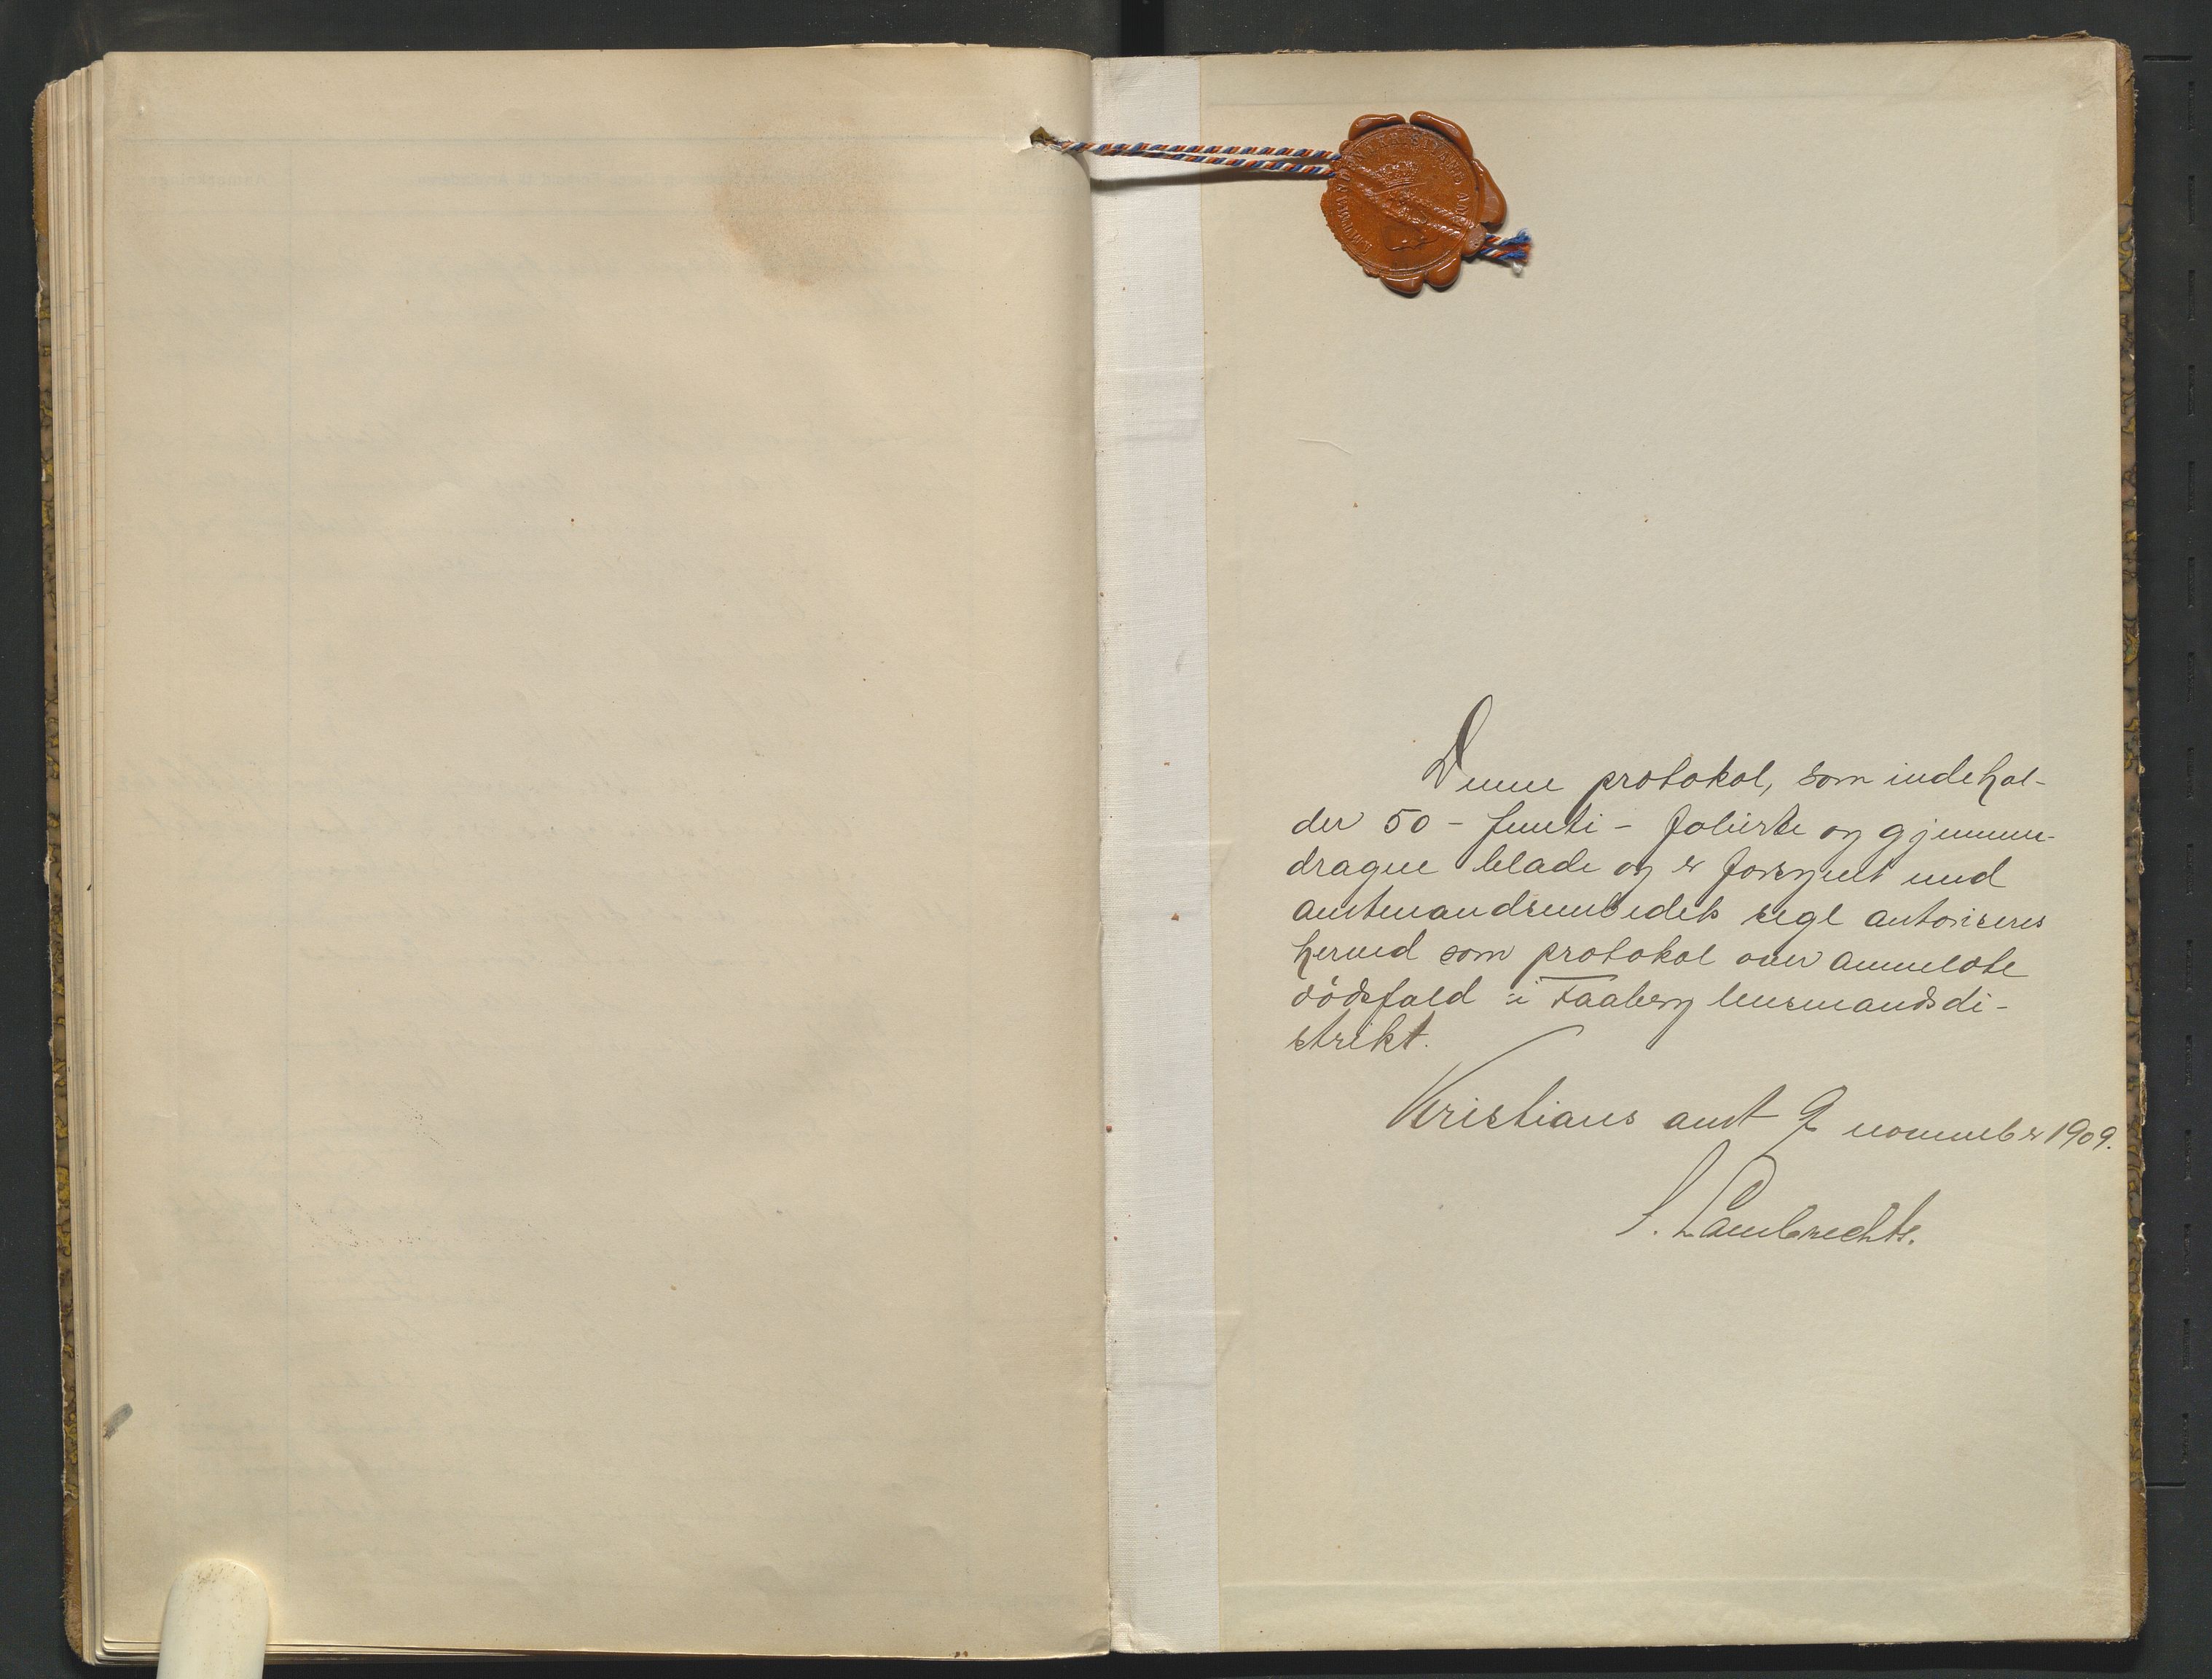 Denne protokol, som indehol-
der 50 - femti - folierte og gjennem-
dragne blade og er forsynet med
amtmandsembedets segl autoriseres
herved som protokol over anmeldte
dödsfald i Faaberg lensmandsdi-
strikt.
Kristians amt 9 november 1909.
S. Lambrechts.